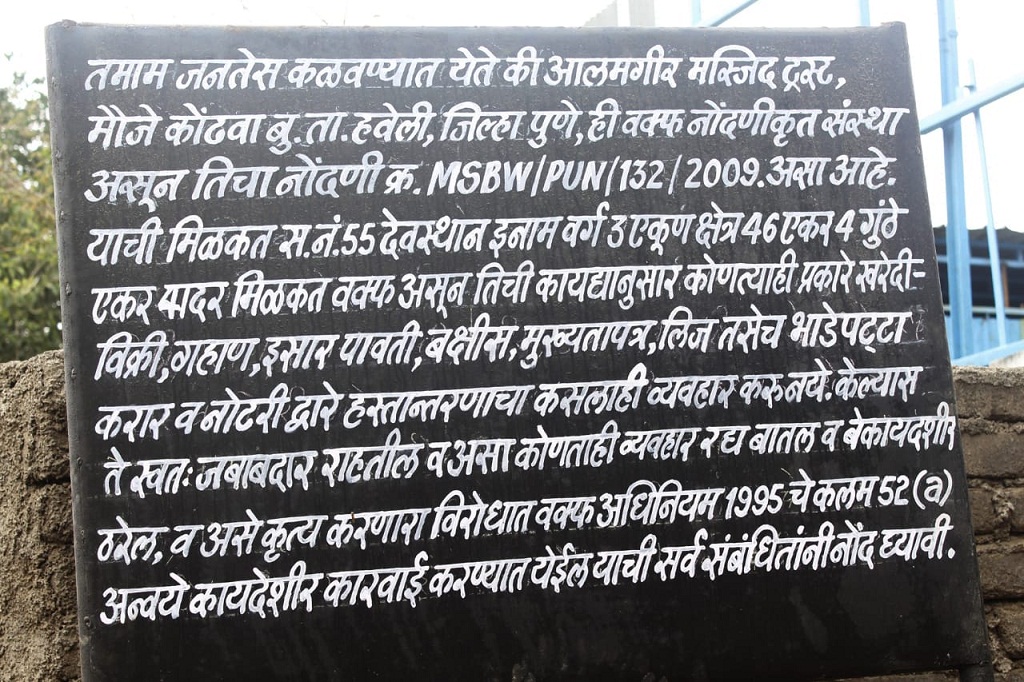 तमाम जनतेस कळवण्यात येते की आलमगीर मस्जिद ट्रस्ट,
मौजे कोंढवा बु. ता. हवेली, जिल्हा पुणे, ही वक्फ नोंदणीकृत संस्था
असून तिचा नोंदणी क्र. MSBW/PUN/132/2009. असा आहे.
याची मिळकत स.नं. 55 देवस्थान इनाम वर्ग 3 एकूण क्षेत्र 46 एकर 4 गुंठे
एकर सदर मिळकत वक्फ असून तिची कायद्यानुसार कोणत्याही प्रकारे खरेदी-
विक्री, गहाण, इसार पावती, बक्षीस, मुख्यतापत्र, लिज तसेच भाडेपट्टा
करार व नोटरी द्वारे हस्तान्तरणाचा कसलाही व्यवहार करु नये. केल्यास
ते स्वतः जबाबदार राहतील व असा कोणताही व्यवहार रद्य बातल व बेकायदशीर
ठरेल, व असे कृत्य करणारा विरोधात वक्फ अधिनियम 1995 चे कलम 52 (a)
अन्वये कायदेशीर कारवाई करण्यात येईल याची सर्व संबंधितांनी नोंद घ्यावी.